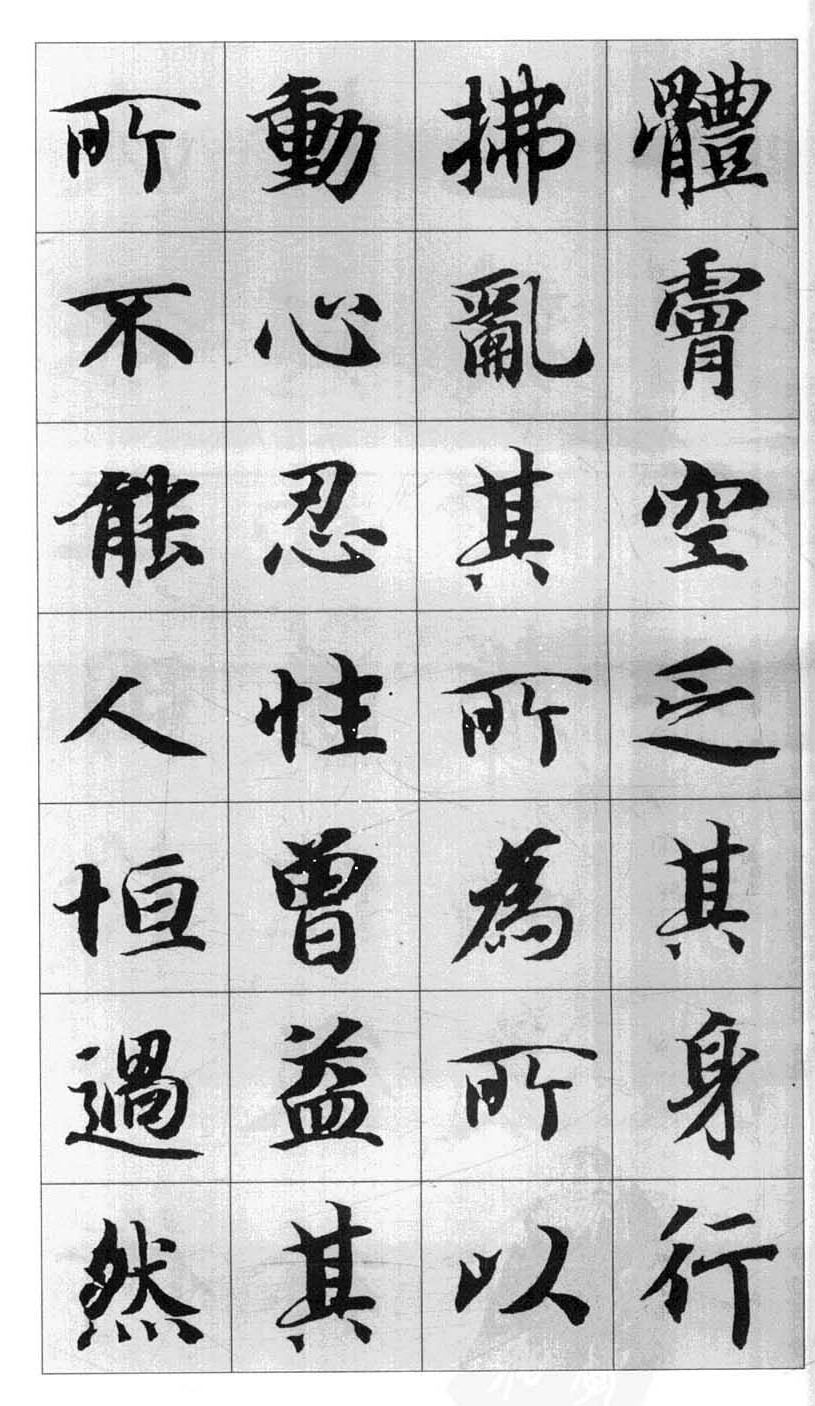 體膚空乏其身行
拂亂其所為所以
動心忍性曾益其
所不能人恒遇然